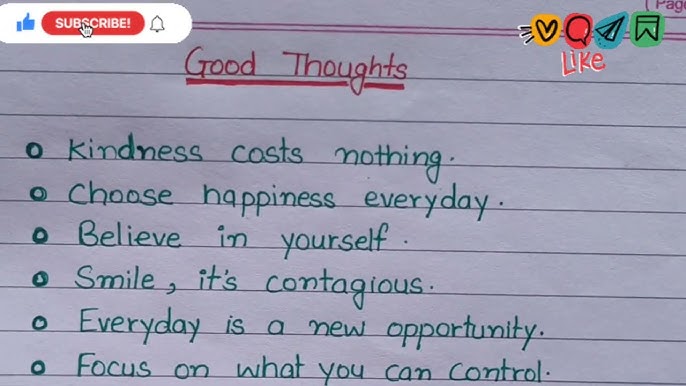 (Page
SUBSCRIBE!
LIKE
Good Thoughts
Kindness costs nothing.
Choose happiness everyday.
Believe in yourself.
Smile, it's contagious.
Everyday is a new opportunity.
Focus on what you can control.